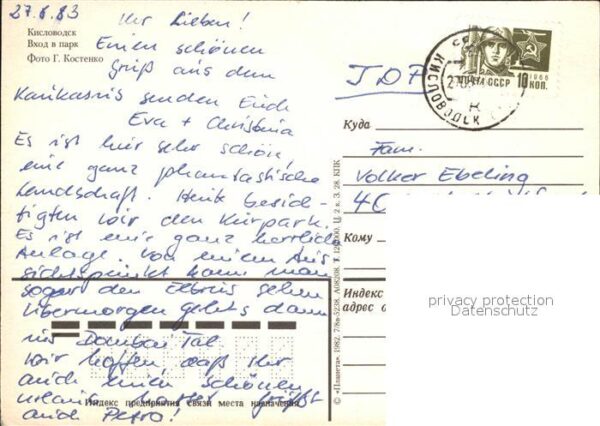 27.6.83
Ihr Lieben!
Кисловодск
Вход в парк
Фото Г. Костенко
Einen schönen
Gruß aus dem
Kaukasus senden Euch
Eva + Christina
Es ist hier sehr schön,
eine ganz phantastische
Landschaft. Heute besich-
tigten wir den Kurpark.
Es ist eine ganz herrliche
Anlage. Von einem Aus
sichtspunkt kann man
sogar den Elbrus sehen
Übermorgen gehts dann
ins Dombai Tal
Wir hoffen, daß Ihr
auch einen schönen
Urlaub hattet grüßt
auch Petra!
Индекс предприятия связи места назначения
© «Планета». 1982. 7/8в-3238. А08208. Т. 120 000. Ц. 2 к. З. 28. КПК
ПОЧТА СССР
1966
10 КОП.
КИСЛОВОДСК
Куда
Fam.
Volker Ebeling
40
Кому
Индекс
адрес о
privacy protection
Datenschutz